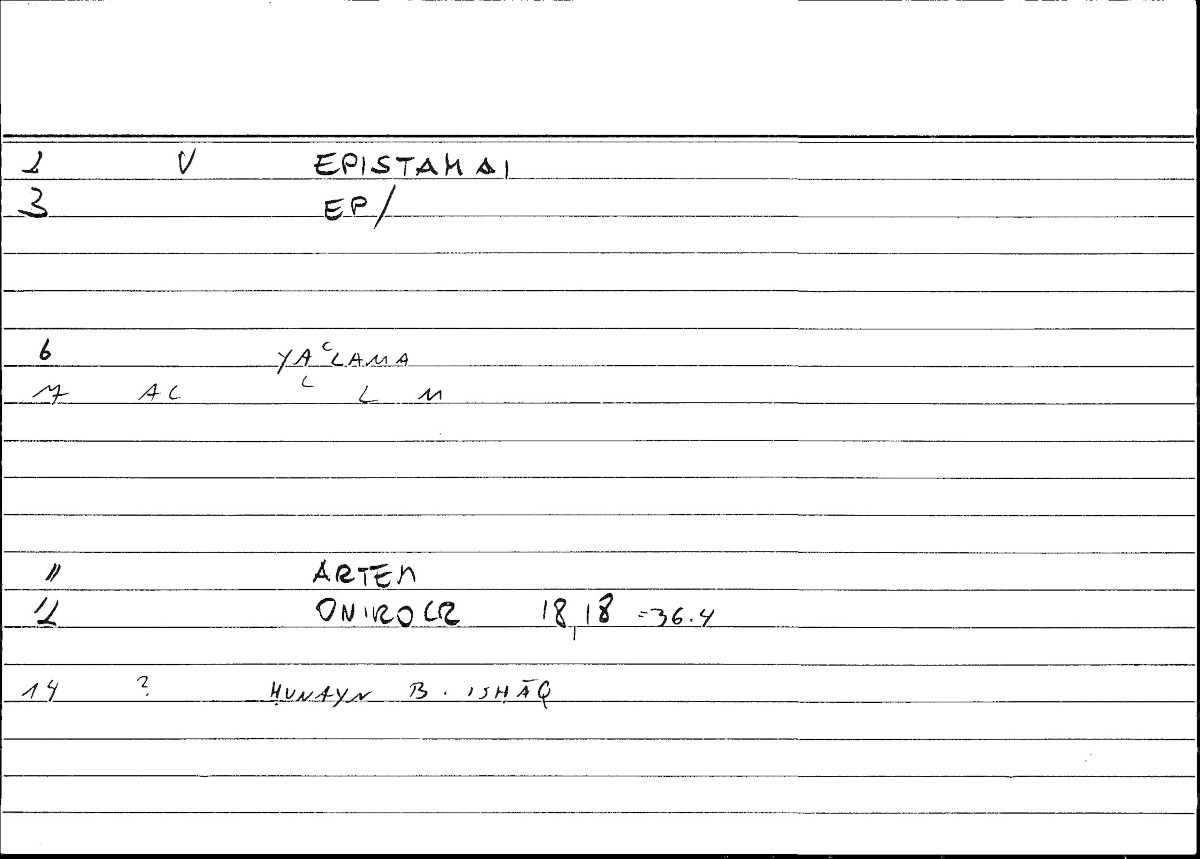 2 V EPISTAMAI
3 EP/
6 YAʿLAMA
7 AC ʿ L M
11 ARTEM
12 ONIROCR 18,18 =36.4
14 ? ḤUNAYN B. ISḤĀQ